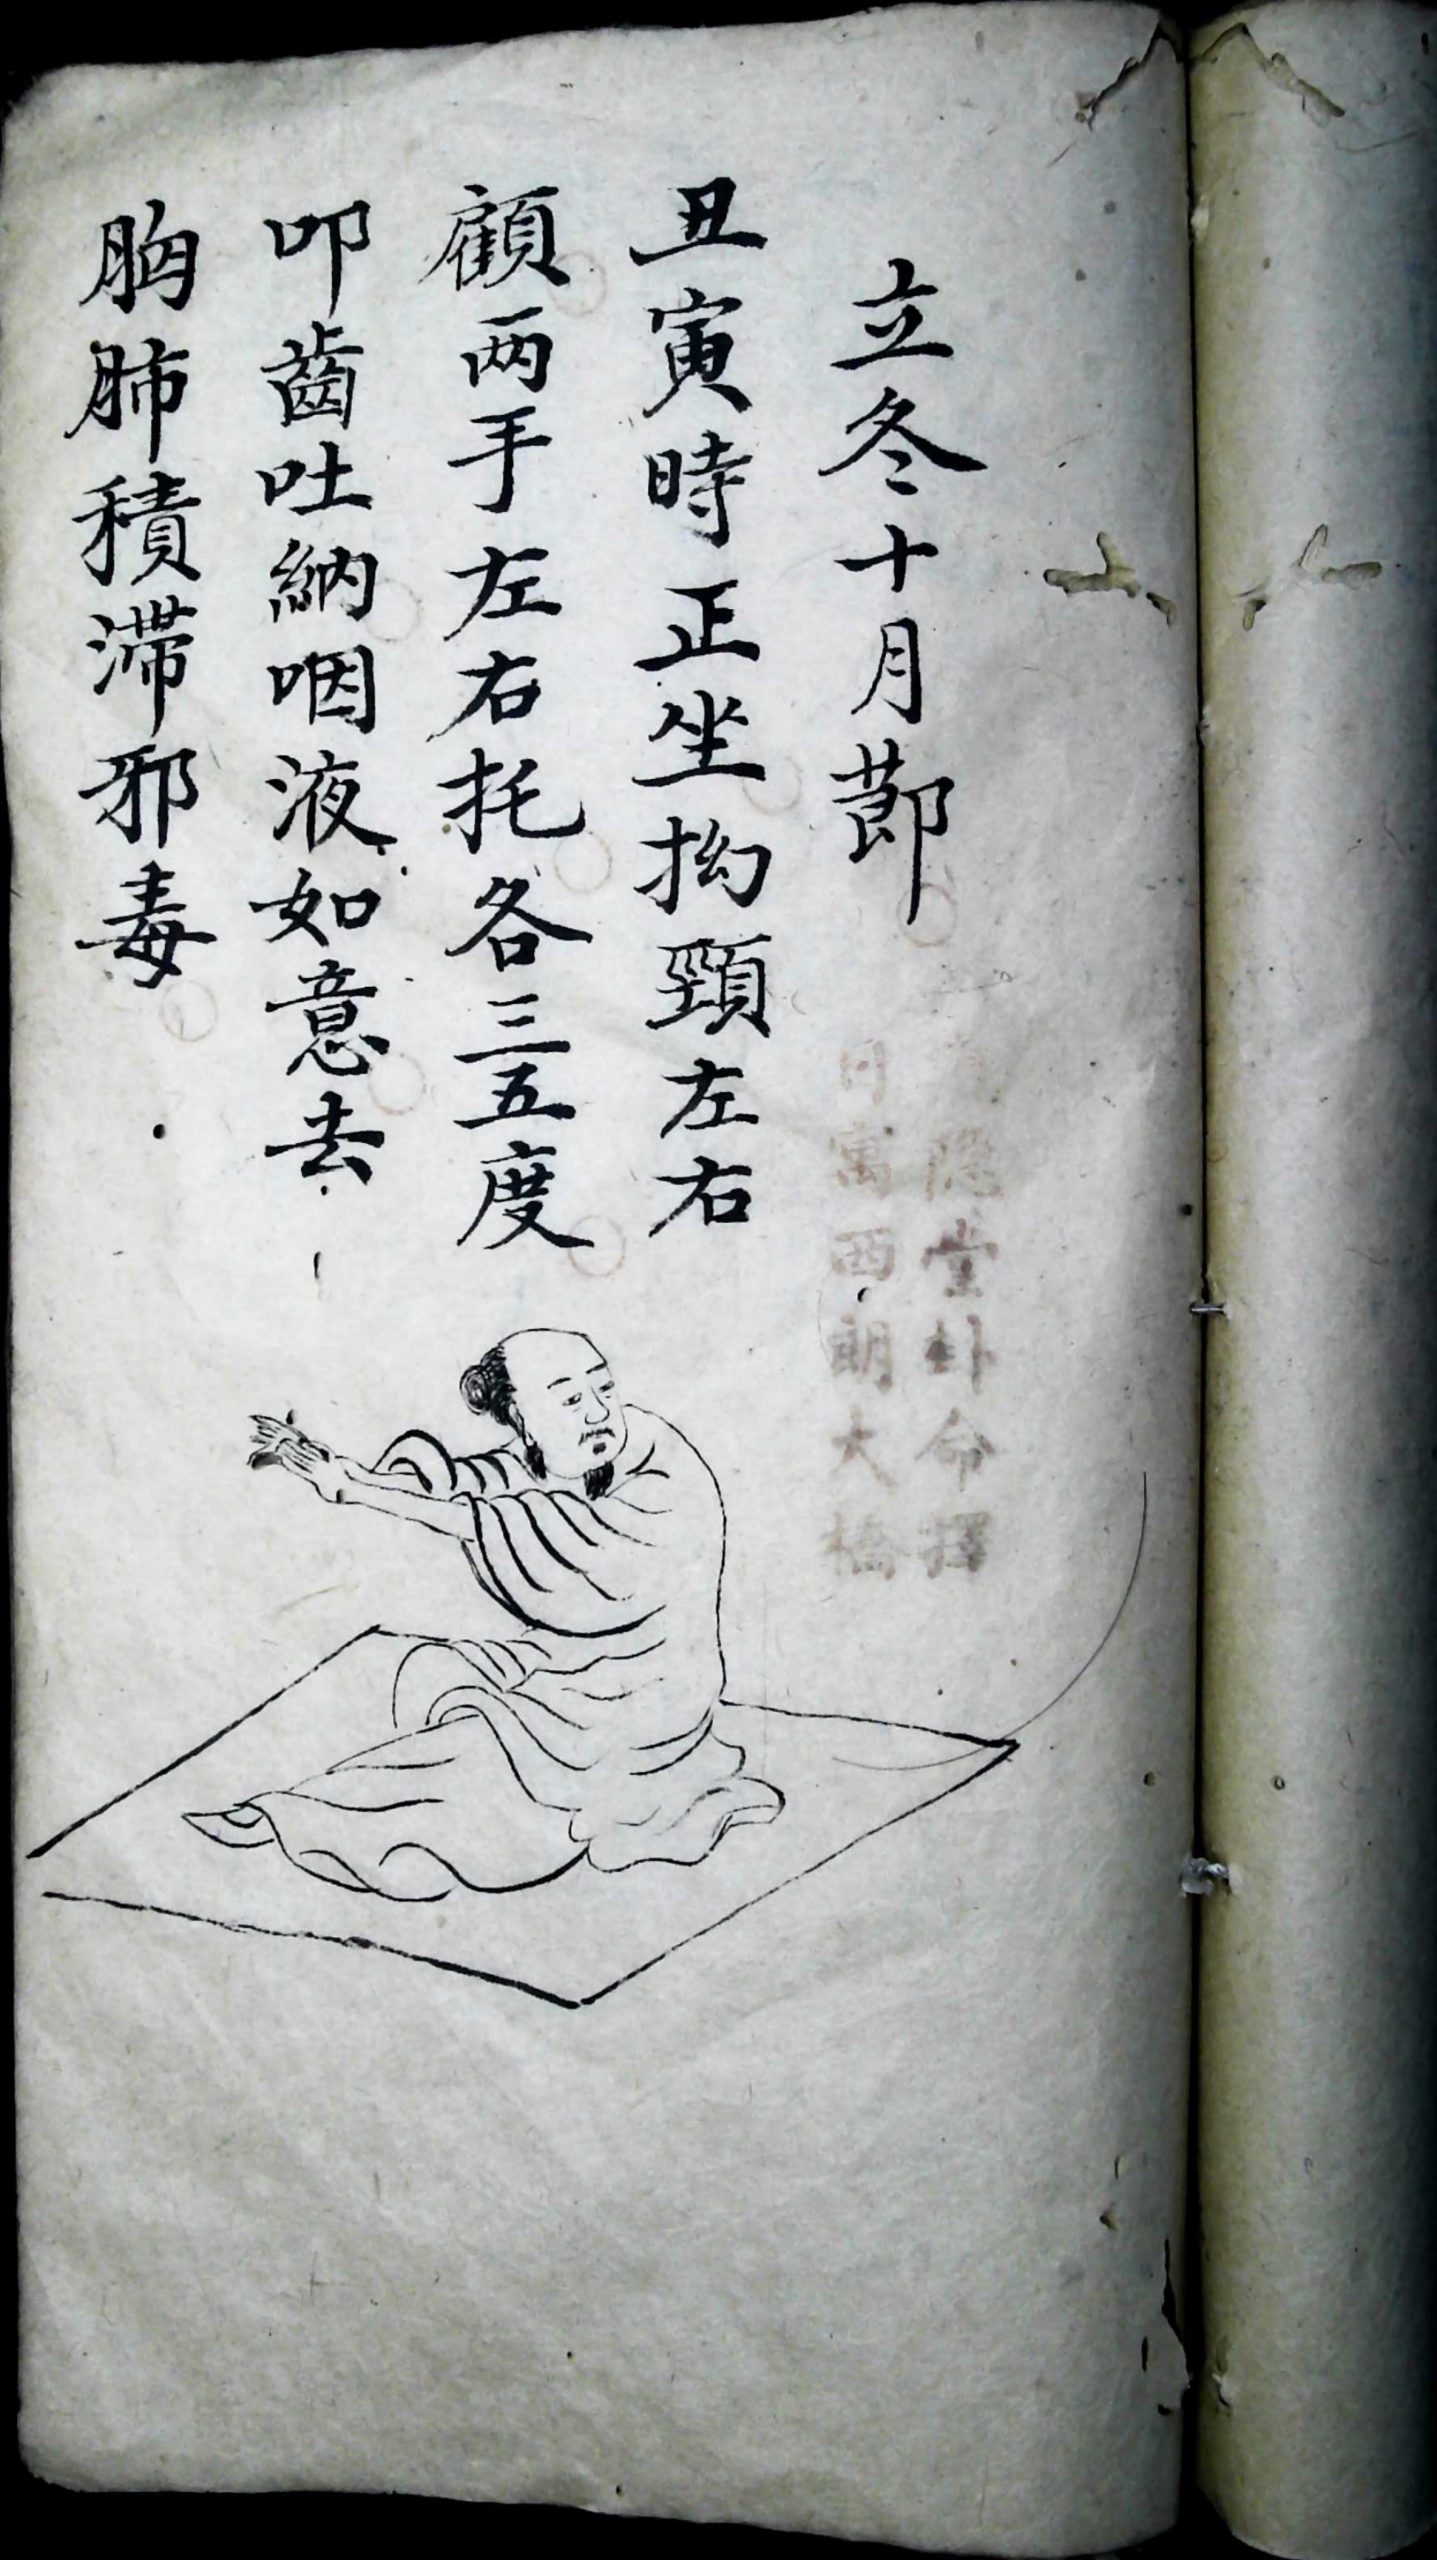 立冬十月節
丑寅時正坐拗頸左右
顧两手左右托各三五度
叩齒吐納咽液如意去
胸肺積滞邪毒
隱堂卦命擇
日寓西朗大橋